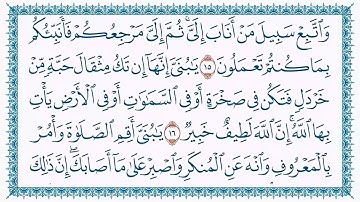 وَاتَّبِعْ سَبِيلَ مَنْ أَنَابَ إِلَيَّ ۚ ثُمَّ إِلَيَّ مَرْجِعُكُمْ فَأُنَبِّئُكُم
بِمَا كُنتُمْ تَعْمَلُونَ ١٥ يَا بُنَيَّ إِنَّهَا إِن تَكُ مِثْقَالَ حَبَّةٍ مِّنْ
خَرْدَلٍ فَتَكُن فِي صَخْرَةٍ أَوْ فِي السَّمَاوَاتِ أَوْ فِي الْأَرْضِ يَأْتِ
بِهَا اللَّهُ ۚ إِنَّ اللَّهَ لَطِيفٌ خَبِيرٌ ١٦ يَا بُنَيَّ أَقِمِ الصَّلَاةَ وَأْمُرْ
بِالْمَعْرُوفِ وَانْهَ عَنِ الْمُنكَرِ وَاصْبِرْ عَلَىٰ مَا أَصَابَكَ ۖ إِنَّ ذَٰلِكَ